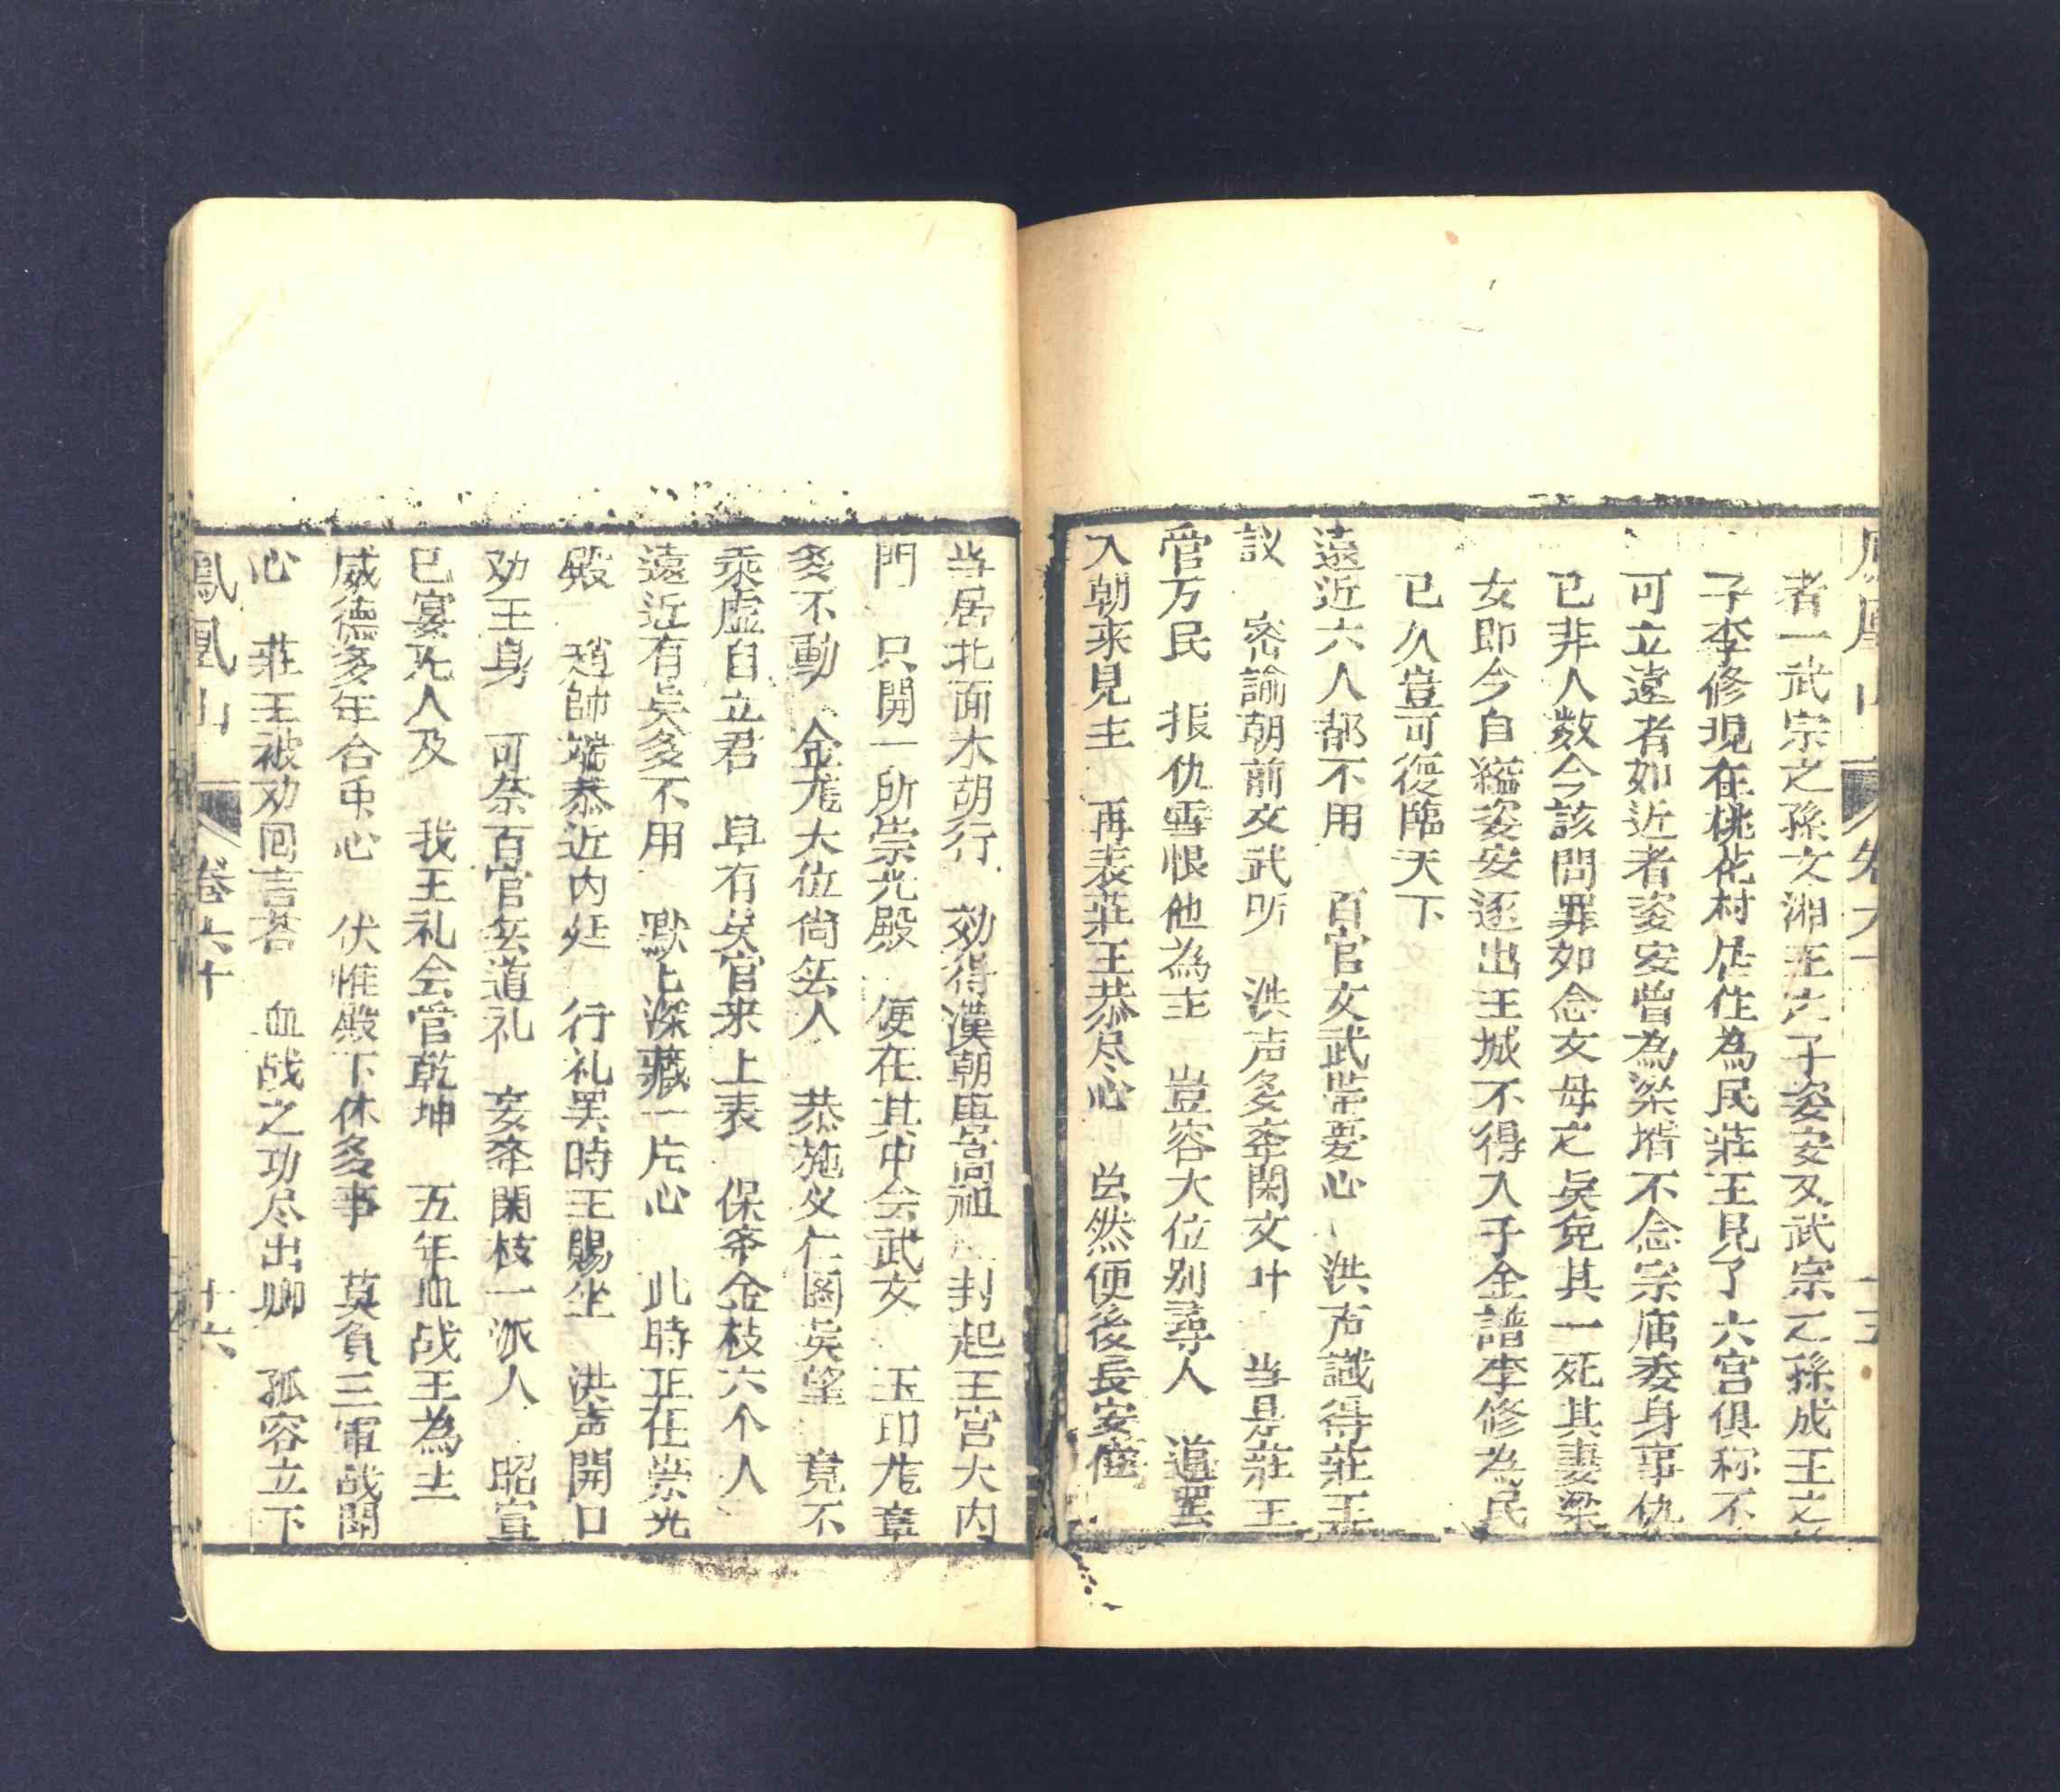 鳳凰山 卷六十 十五
者一武宗之孫文湘王之子姿安又武宗之孫成王之
子李修現在桃花村居住為民莊王見了六宮俱称不
可立遠者如近者姿安曾為梁壻不念宗庙委身事仇
已非人数今該問罪如念父母之矣免其一死其妻梁
女即今自縊姿安逐出王城不得入子全譜李修為民
已久豈可復臨天下
遠近六人都不用 百官文武带憂心 洪声識得莊王
議 密諭朝前文武听 洪声多牽関文叶 当是莊王
管万民 报仇雪恨他為主 豈容大位别尋人 道罢
入朝来見主 再表莊王恭尽心 虽然便後長安
当居北面木胡行 効得漢朝唐高祖 封起王宮大内
門 只開一所崇光殿 便在其中会武文 玉印尨章
多不動 金尨大位尚無人 恭施义仁图矣望 竟不
乘虚自立君 早有矣官来上表 保帝金枝六个人
遠近有矣多不用 默匕深藏一片心 此時正在崇光
殿 趙帥端恭近内廷 行礼罢時王賜坐 洪声開口
劝王身 可奈百官無道礼 妄牽閑枝一派人 昭宣
已宴死人及 我王礼会管乾坤 五年血战王為主
威德多年合中心 伏惟殿下休多事 莫負三軍战鬪
心 莊王被劝回言荅 血战之功尽出卿 孤容立下
鳳凰山 卷六十 十六